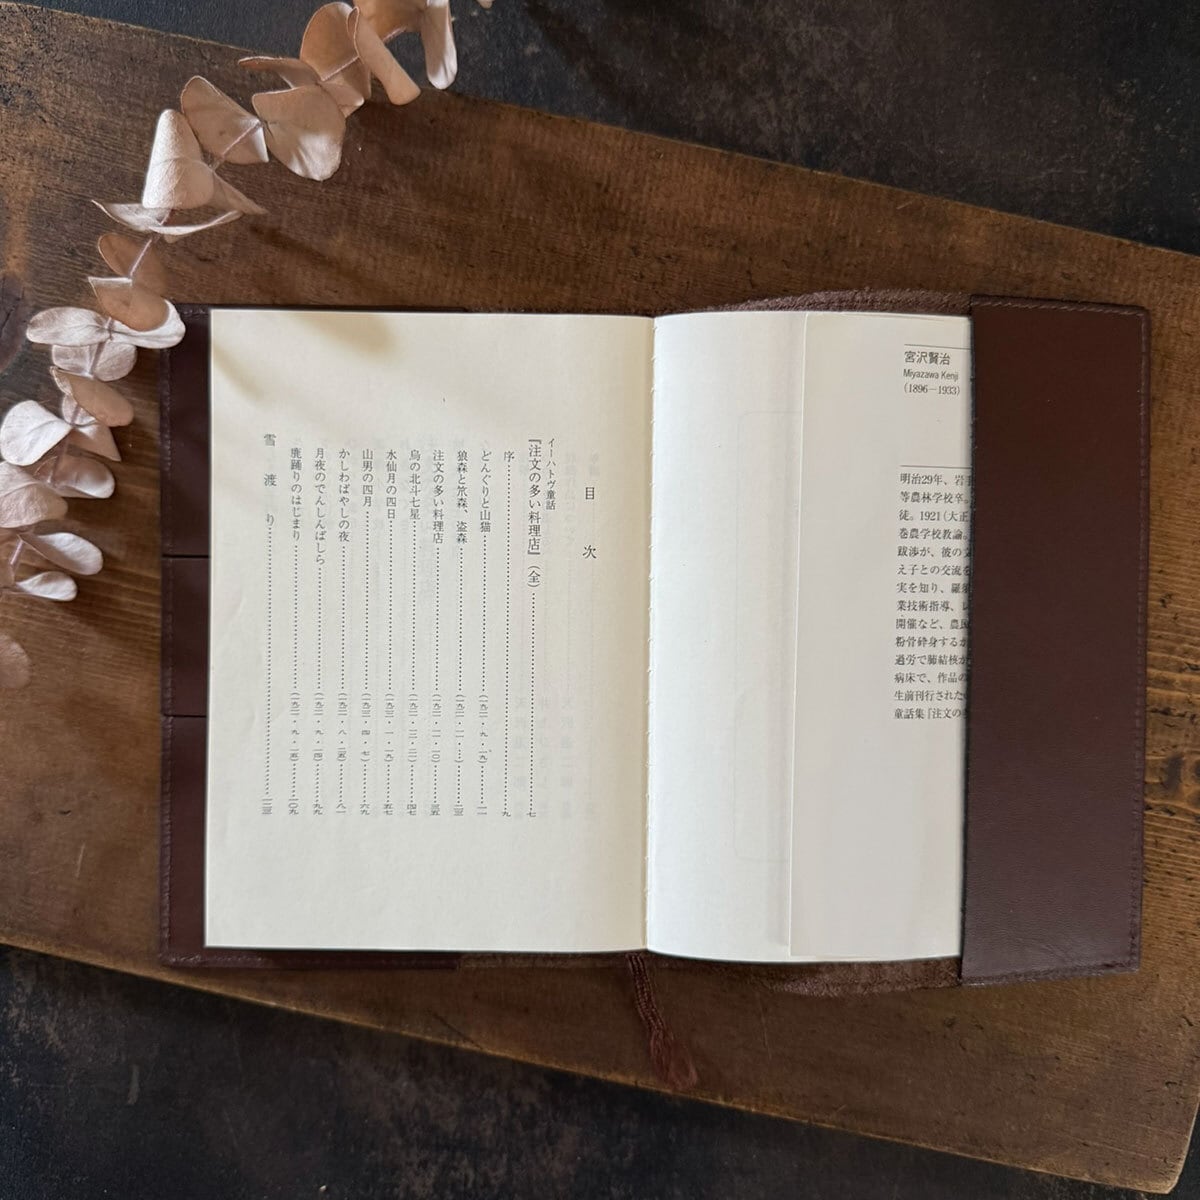 宮沢賢治
Miyazawa Kenji
(1896－1933)
明治29年、岩手
等農林学校卒。
徒。1921（大正
巻農学校教諭。
跋渉が、彼の文
え子との交流を
実を知り、羅須
業技術指導、レ
開催など、農民
粉骨砕身するが
過労で肺結核が
病床で、作品の
生前刊行された
童話集『注文の多
目次
イーハトヴ童話
『注文の多い料理店』（全）……七
序……九
どんぐりと山猫……（一九二一・九・一九）……一一
狼森と笊森、盗森……（一九二一・一一・―）……二三
注文の多い料理店……（一九二一・一一・一〇）……三五
烏の北斗七星……（一九二一・一二・二一）……四七
水仙月の四日……（一九二二・一・一九）……五七
山男の四月……（一九二二・四・七）……六九
かしわばやしの夜……（一九二一・八・二五）……八一
月夜のでんしんばしら……（一九二一・九・一四）……九九
鹿踊りのはじまり……（一九二一・九・一五）……一〇九
雪渡り……一二三